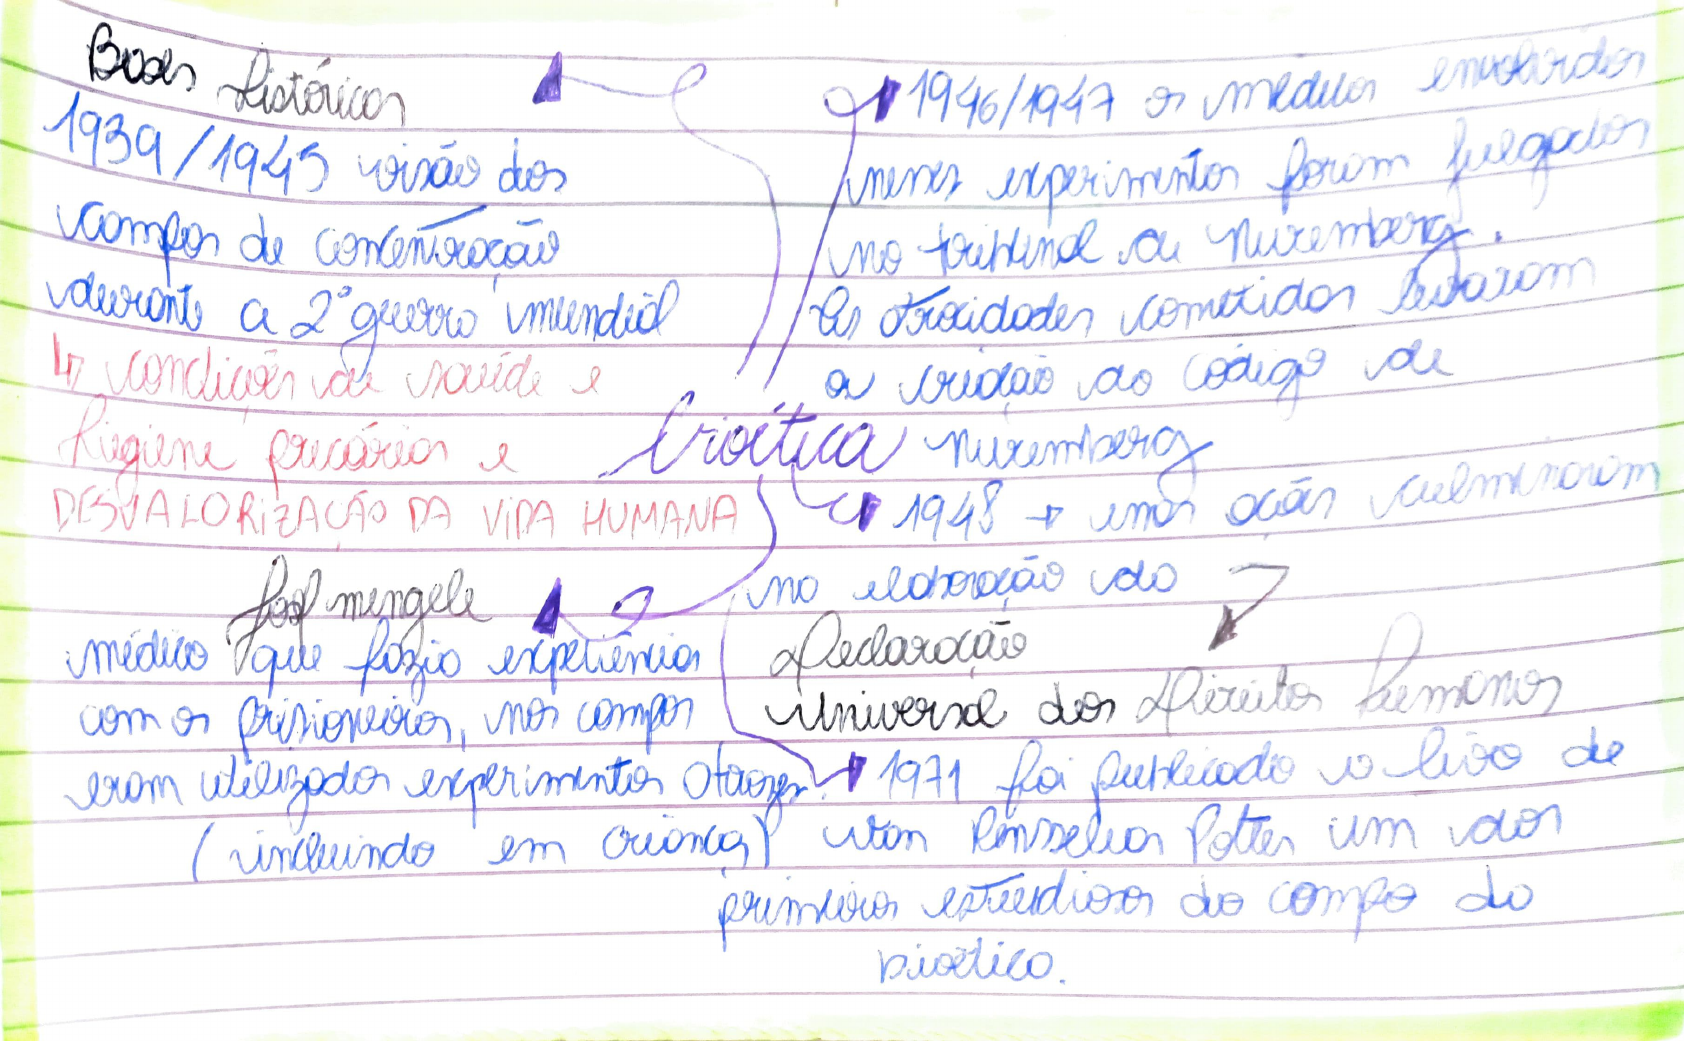 Bases históricas
1939/1945 visão dos
campos de concentração
durante a 2° guerra mundial
↳ condições de saúde e
higiene precárias e
DESVALORIZAÇÃO DA VIDA HUMANA
bioética
Josef mengele
médico que fazia experiências
com os prisioneiros, nos campos
eram utilizados experimentos atrozes.
(incluindo em crianças)
1946/1947 os médicos envolvidos
nesses experimentos foram julgados
no tribunal de Nuremberg.
As atrocidades cometidas levaram
a criação do código de
Nuremberg
1948 → essas ações culminaram
na elaboração da
Declaração
Universal dos Direitos Humanos
1971 foi publicado o livro de
Van Rensselear Potter um dos
primeiros estudiosos do campo da
bioética.